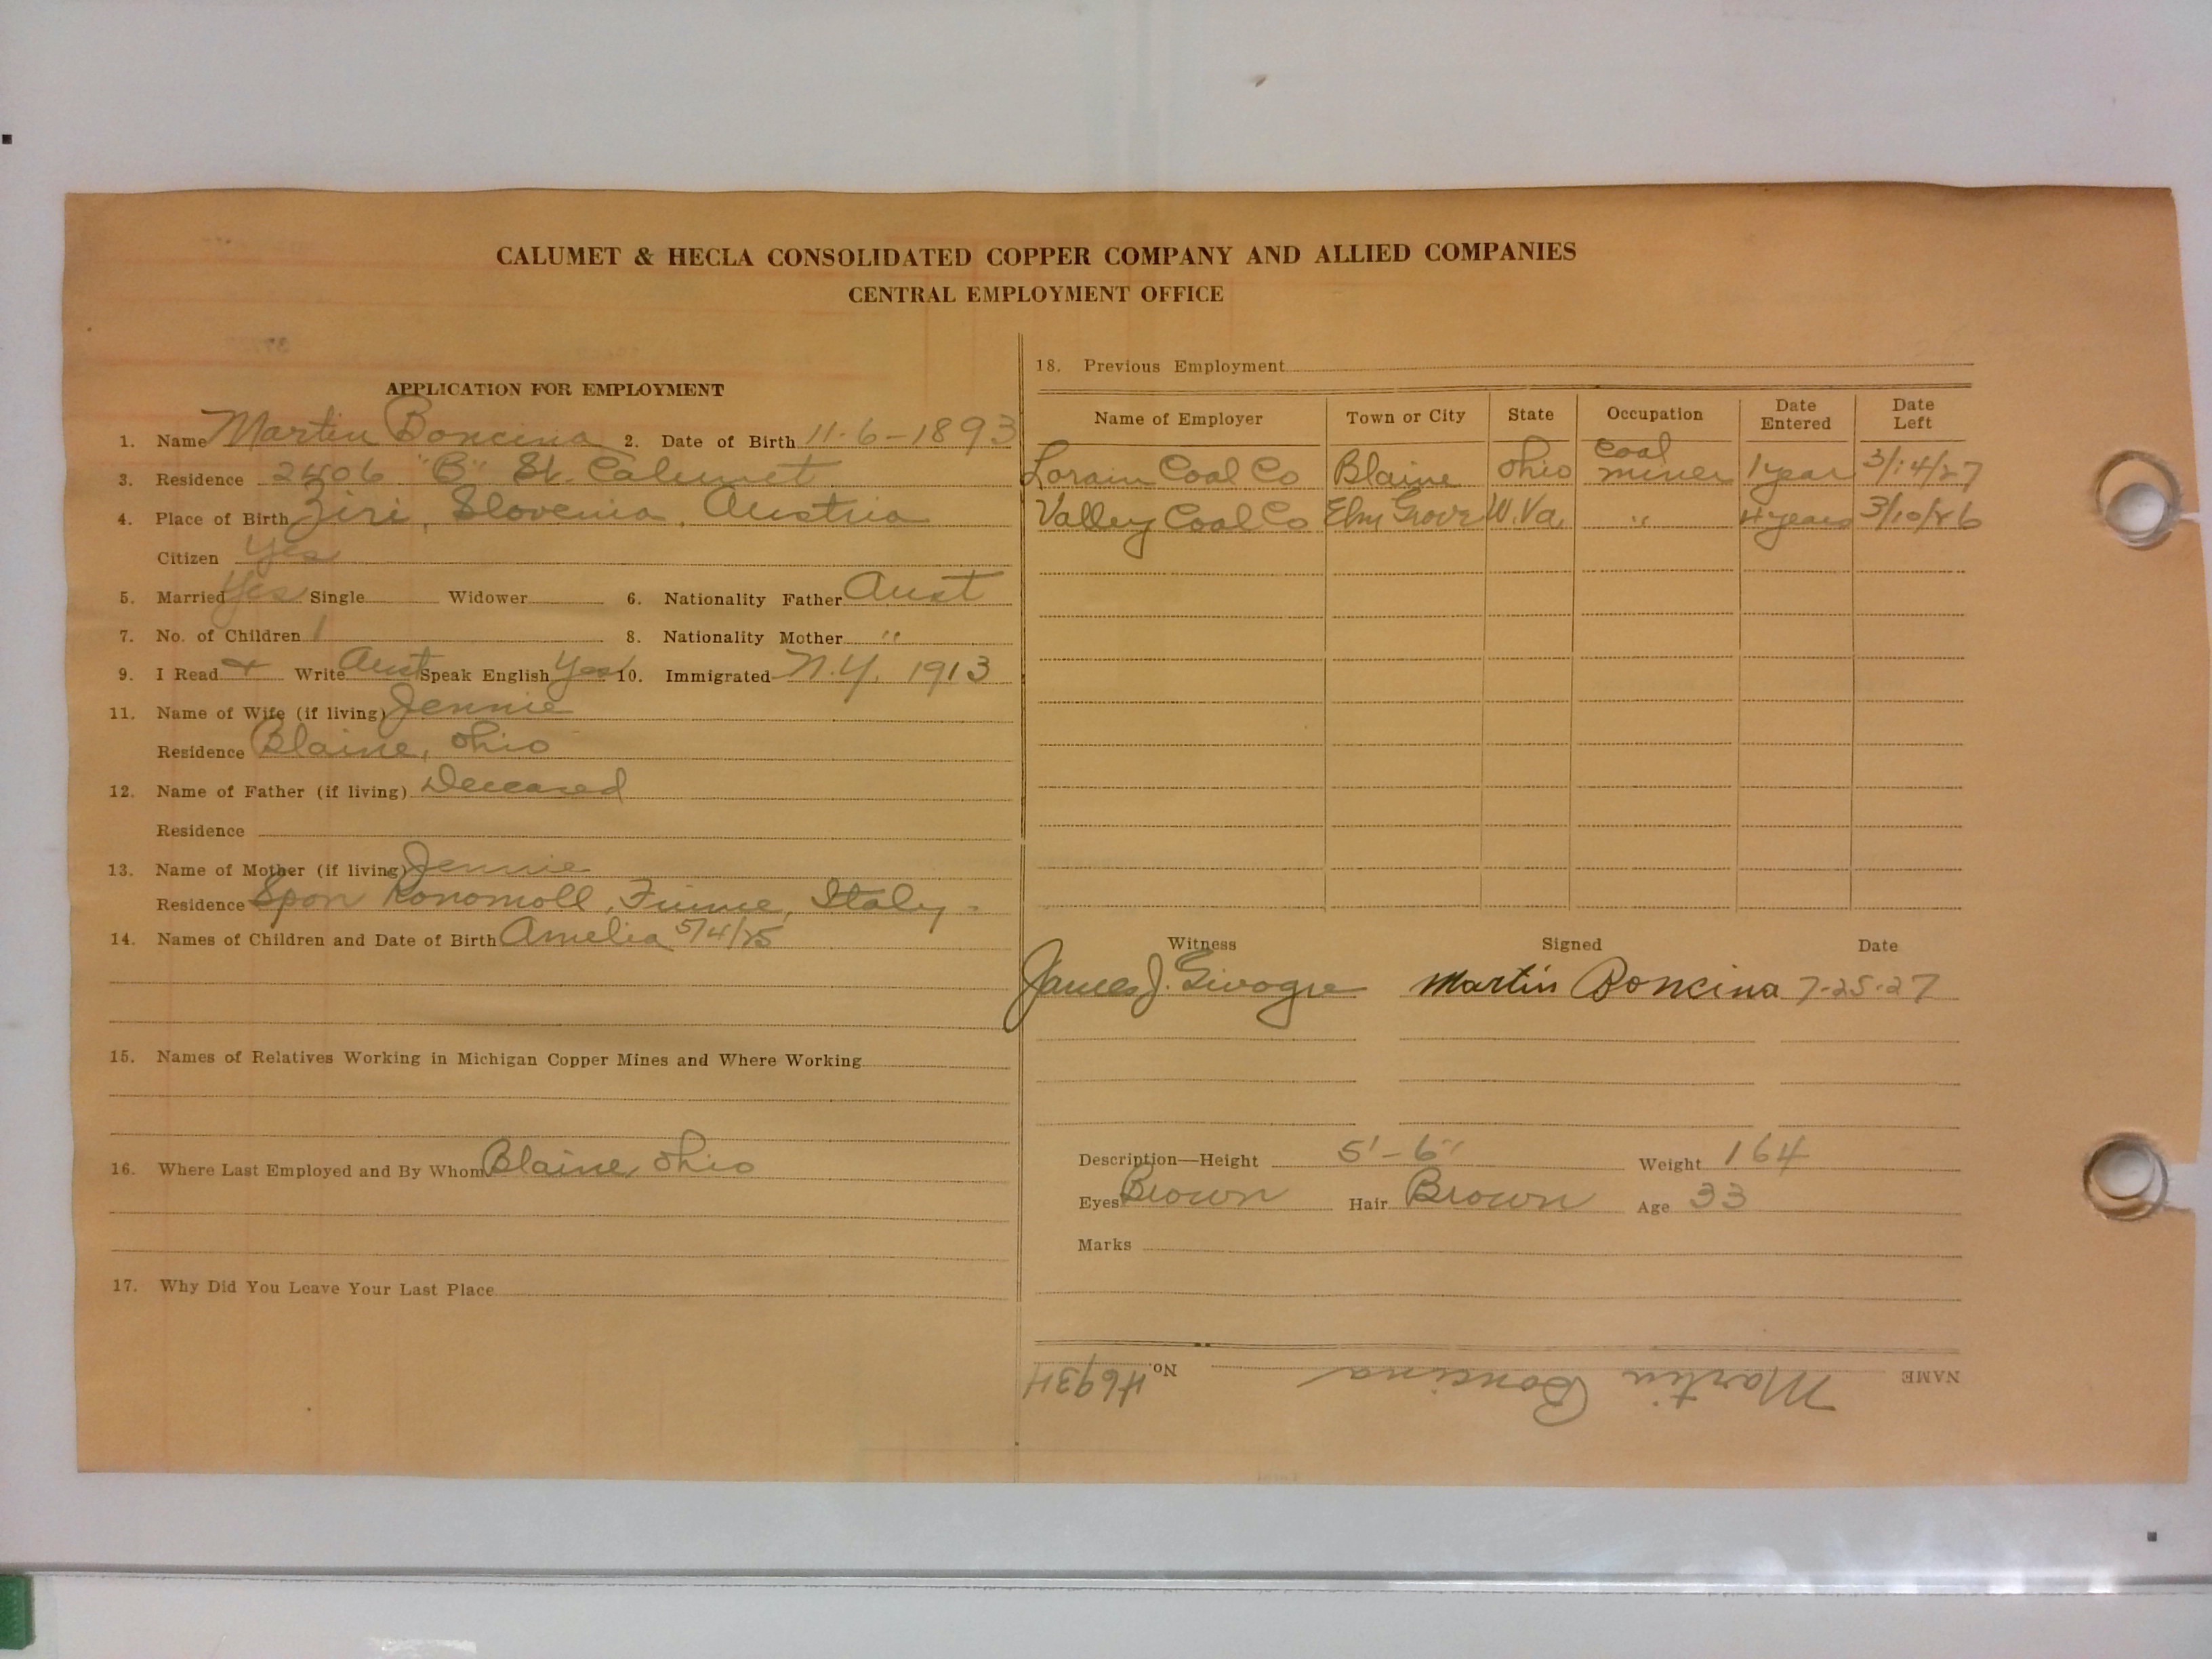 CALUMET & HECLA CONSOLIDATED COPPER COMPANY AND ALLIED COMPANIES
CENTRAL EMPLOYMENT OFFICE
APPLICATION FOR EMPLOYMENT
1. Name Martin Boncina 2. Date of Birth 11-6-1893
3. Residence 2406 "B" St. Calumet
4. Place of Birth Ziri, Slovenia, Austria
Citizen Yes
5. Married Yes Single Widower 6. Nationality Father Aust
7. No. of Children 1 8. Nationality Mother "
9. I Read + Write Aust Speak English Yes 10. Immigrated N.Y. 1913
11. Name of Wife (if living) Jennie
Residence Blaine, Ohio
12. Name of Father (if living) Deceased
Residence
13. Name of Mother (if living) Jennie
Residence Spon Konomoll, Fiume, Italy.
14. Names of Children and Date of Birth Amelia 5/4/25
15. Names of Relatives Working in Michigan Copper Mines and Where Working
16. Where Last Employed and By Whom Blaine, Ohio
17. Why Did You Leave Your Last Place
18. Previous Employment
Name of Employer Town or City State Occupation Date Entered Date Left
Lorain Coal Co Blaine Ohio Coal miner 1 year 3/14/27
Valley Coal Co Elm Grove W.Va. " 4 years 3/10/26
Witness Signed Date
James J. Martin Boncina 7-25-27
Description—Height 5'-6" Weight 164
Eyes Brown Hair Brown Age 33
Marks
NAME Martin Boncina No.